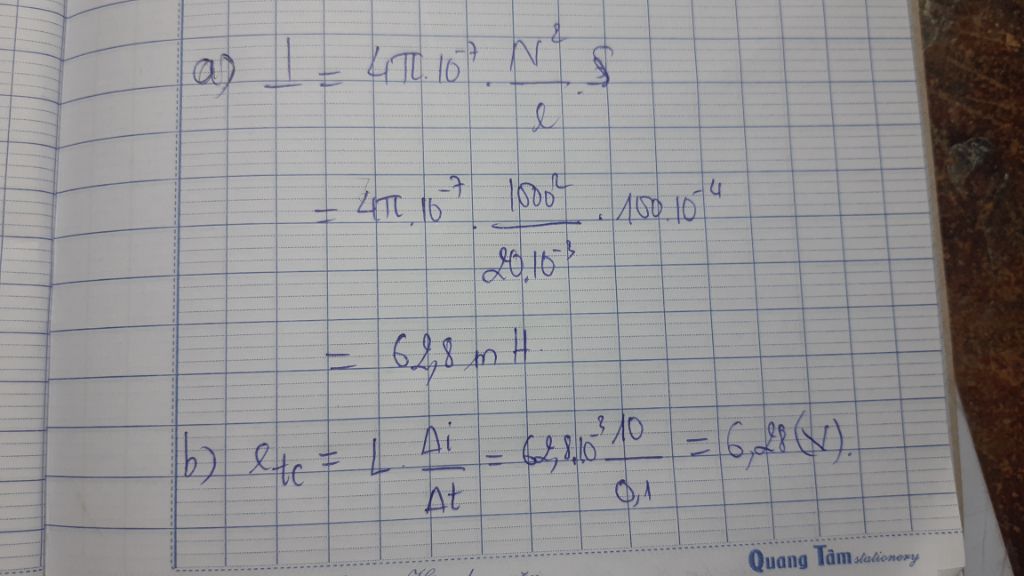 a) L = 4π.10⁻⁷ . N²/l . S
= 4π.10⁻⁷ . 1000²/20.10⁻³ . 100.10⁻⁴
= 62,8 mH
b) etc = L . Δi/Δt = 62,8.10⁻³ 10/0,1 = 6,28 (V).
Quang Tâm stationery